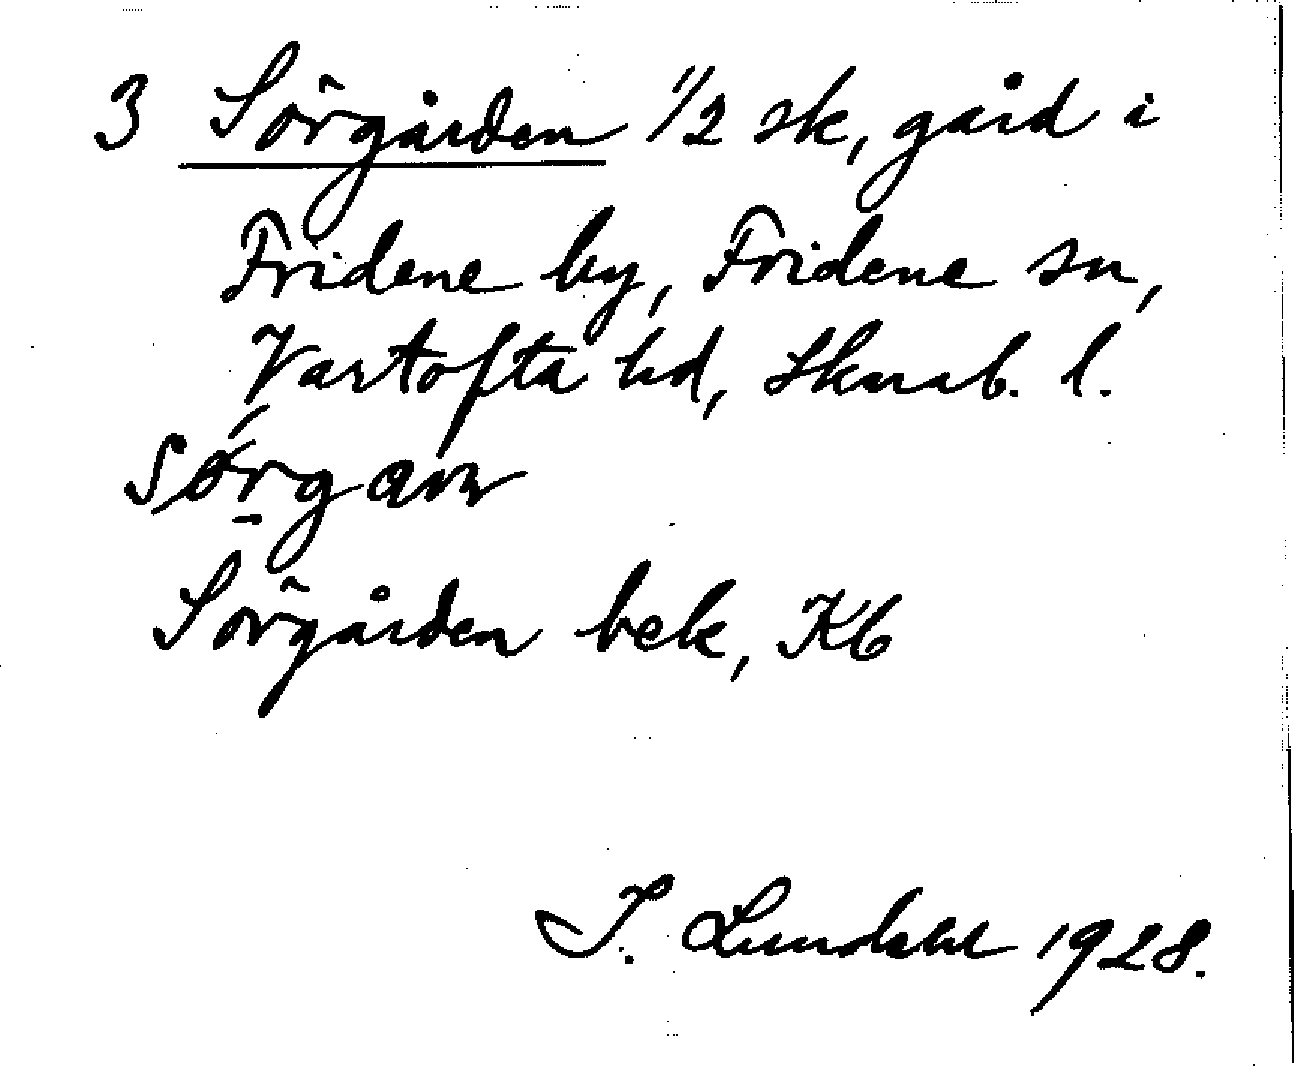 3 Sörgården 1/2 sk, gård i
Fridene by, Fridene sn,
Vartofta hd, Skarab. l.
Sörgården bek, Kb
I. Lundahl 1928.